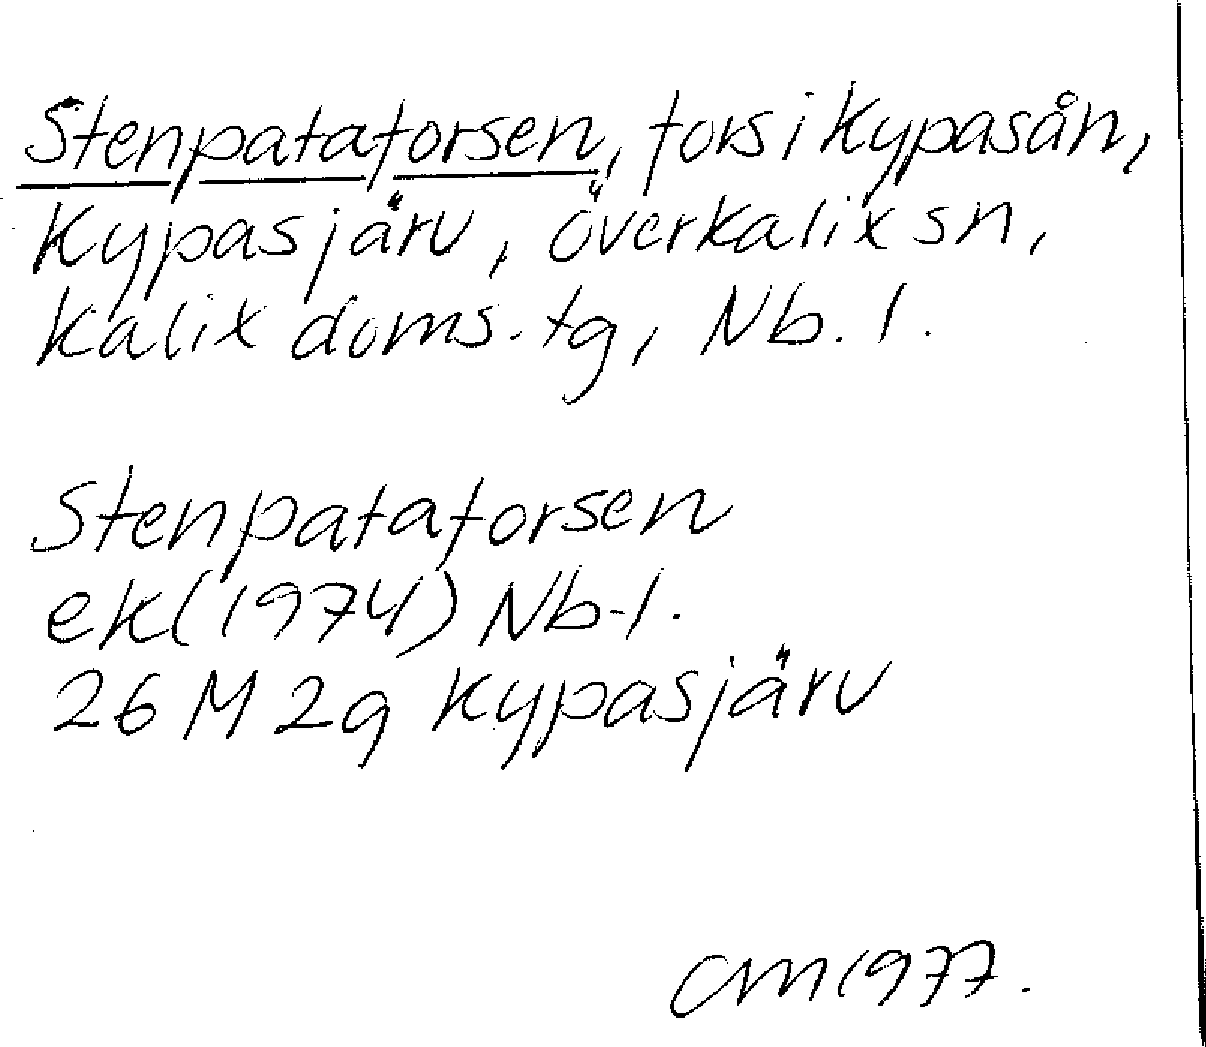 Stenpataforsen, fors i Kypasån,
Kypasjärv, överkalix sn,
Kalix doms. tg, Nb. l.
Stenpataforsen
ek(1974) Nb-l.
26 M 2g Kypasjärv
CM1977.